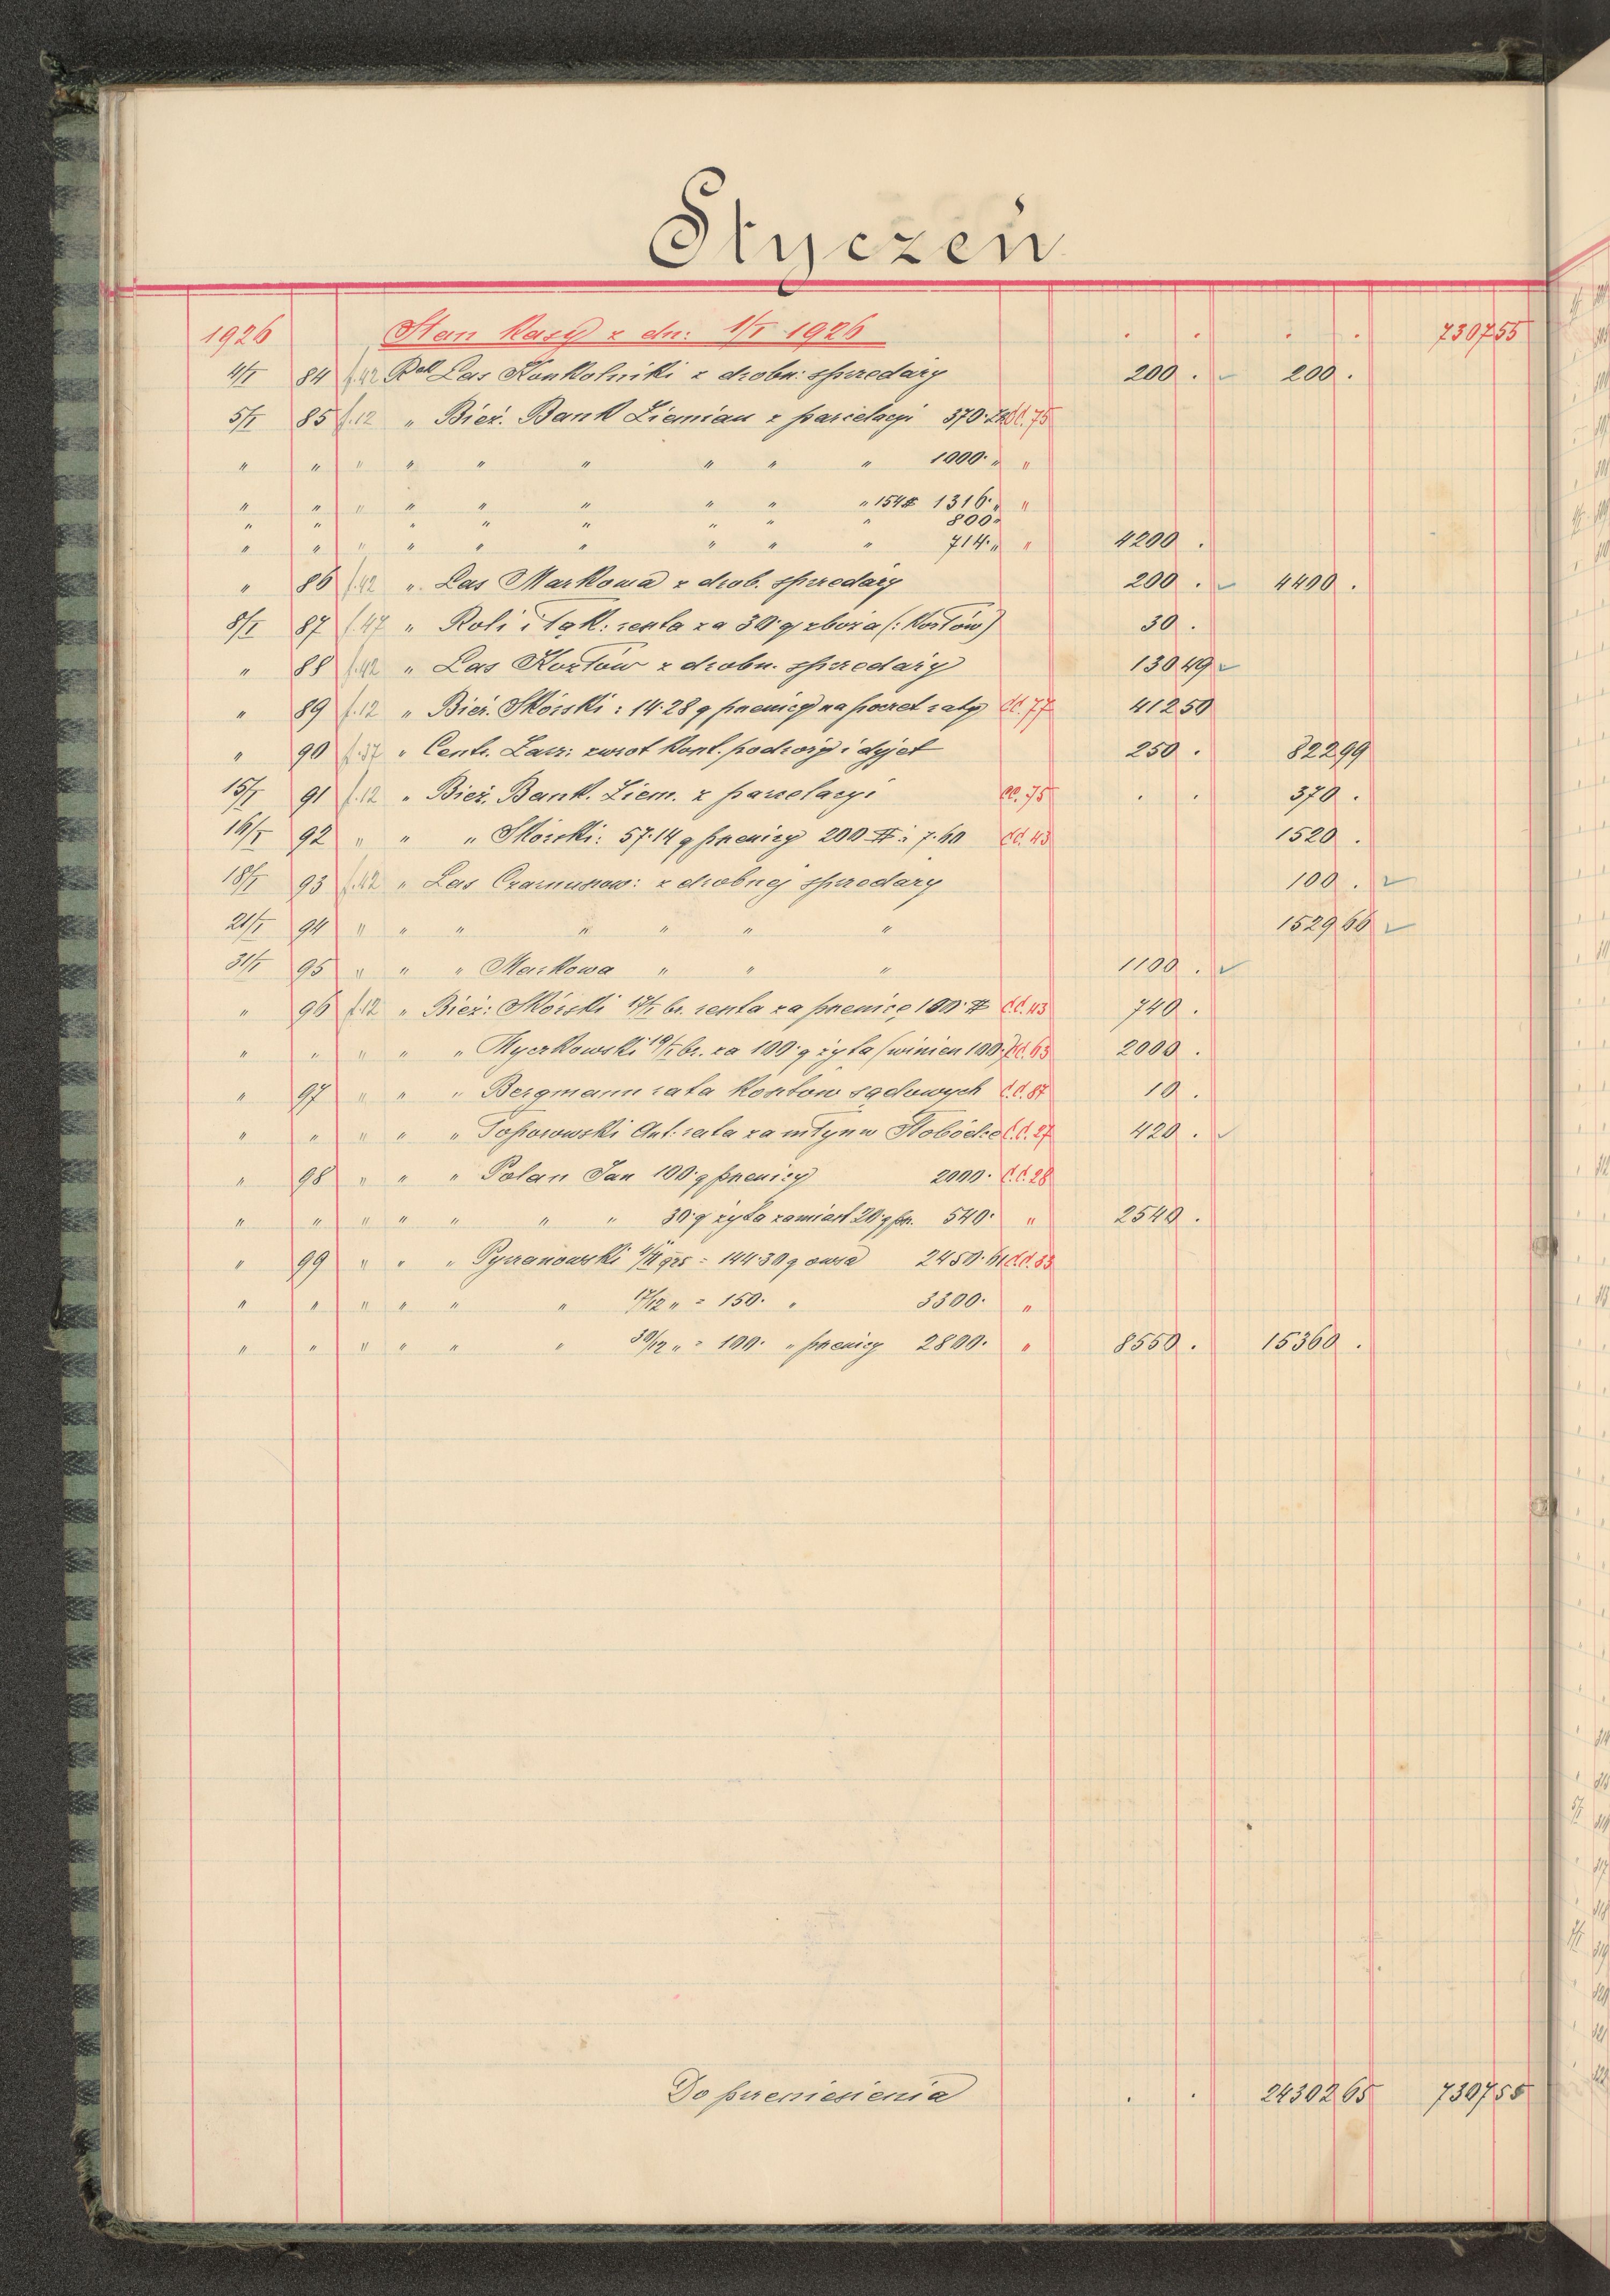 Styczeń
1926 Stan Kasy z dn: 1/I 1926 . . . . 7307 55
4/I 84 f.42 Rok Las Konkolniki z drobn: sprzedaży 200 . 200 .
5/I 85 f.12 " Bież. Bank Ziemian z parcelacyi 370· Zł d.d. 75
" " " " " " " " " 1000· " "
" " " " " " " " " 154 $ 1316· " "
" " " " " " " " 800 "
" " " " " " " " " 714· " " 4200 .
" 86 f.42 " Las Markowa z drob. sprzedaży 200 . 4400 .
8/I 87 f.47 " Roli i łąk: reszta za 30· q zboża (: Kozłów) 30 .
" 88 f.42 " Las Kozłów z drobn. sprzedaży 130 49
" 89 f.12 " Bież. Skórski : 14·28 q pszenicy na poczet raty d.d. 77 412 50
" 90 f.37 " Centr. Zarz: zwrot kont. podróży i dyjet 250 . 822 99
15/I 91 f.12 " Bież. Bank. Ziem. z parcelacyi d.d. 75 . . 370 .
16/I 92 " " " Skórski: 57·14 q pszenicy 200 $ à 7·60 d.d. 43 1520 .
18/I 93 f.42 " Las Czarnuszow: z drobnej sprzedaży 100 .
21/I 94 " " " " " " " 1529 66
31/I 95 " " " Markowa " " " 1100 .
" 96 f.12 " Bież: Skórski 17/I br. reszta za pszenicę 100· $ d.d. 43 740 .
" " " " " 19/I br. za 100· q żyta (winien 100·) d.d. 63 2000 .
" 97 " " " Bergmann rata kosztów sądowych d.d. 87 10 .
" " " " " Toporowski Ant: rata za młyn w Słobódce d.d. 27 420 .
" 98 " " " Polan Jan 100· q pszenicy 2000· d.d. 28
" " " " " " " 30· q żyta zamiast 20 q psz. 540· " 2540 .
" 99 " " " 925 = 144·30 q owsa 2450· d.d. 83
" " " " " " 17/12 " = 150· " 3300· "
" " " " " " 30/12 " = 100· " pszenicy 2800· " 8550 . 15360 .
Do przeniesienia . . 24302 65 7307 55